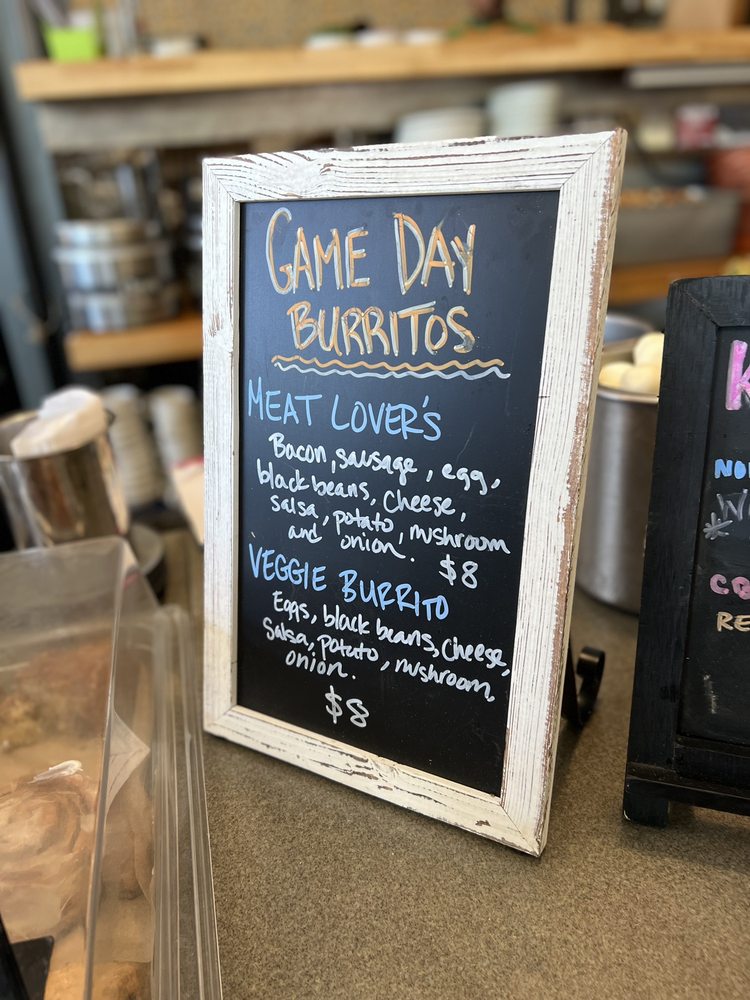 GAME DAY
BURRITOS
MEAT LOVER'S
Bacon, sausage, egg,
black beans, cheese,
salsa, potato, mushroom
and onion. $8
VEGGIE BURRITO
Eggs, black beans, cheese,
salsa, potato, mushroom,
onion.
$8